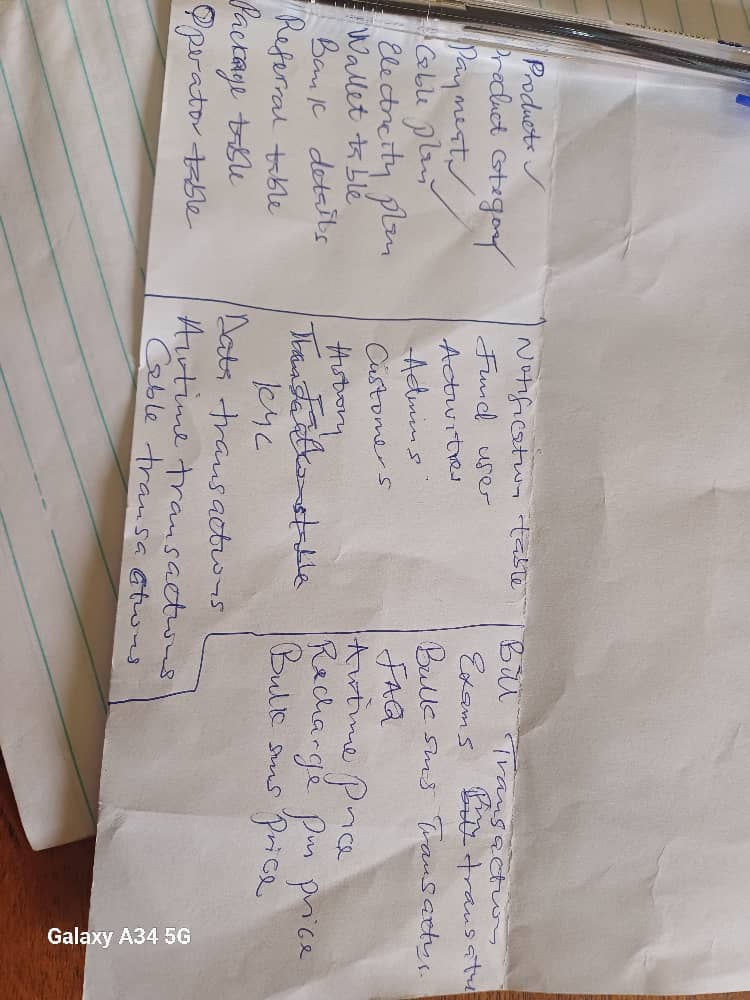 Products ✓
Product Category ✓
Payment ✓
Cable plan ✓
Electricity plan
Wallet table
Bank details
Referral table
Package table
Operator table
Notification table
Fund user
Activities
Admins
Customers
History
Transactions table
KYC
Data transactions
Airtime transactions
Cable transactions
Bill Transaction
Exams Pin transactn
Bulk sms Transactns.
FAQ
Airtime Price
Recharge pin price
Bulk sms Price
Galaxy A34 5G